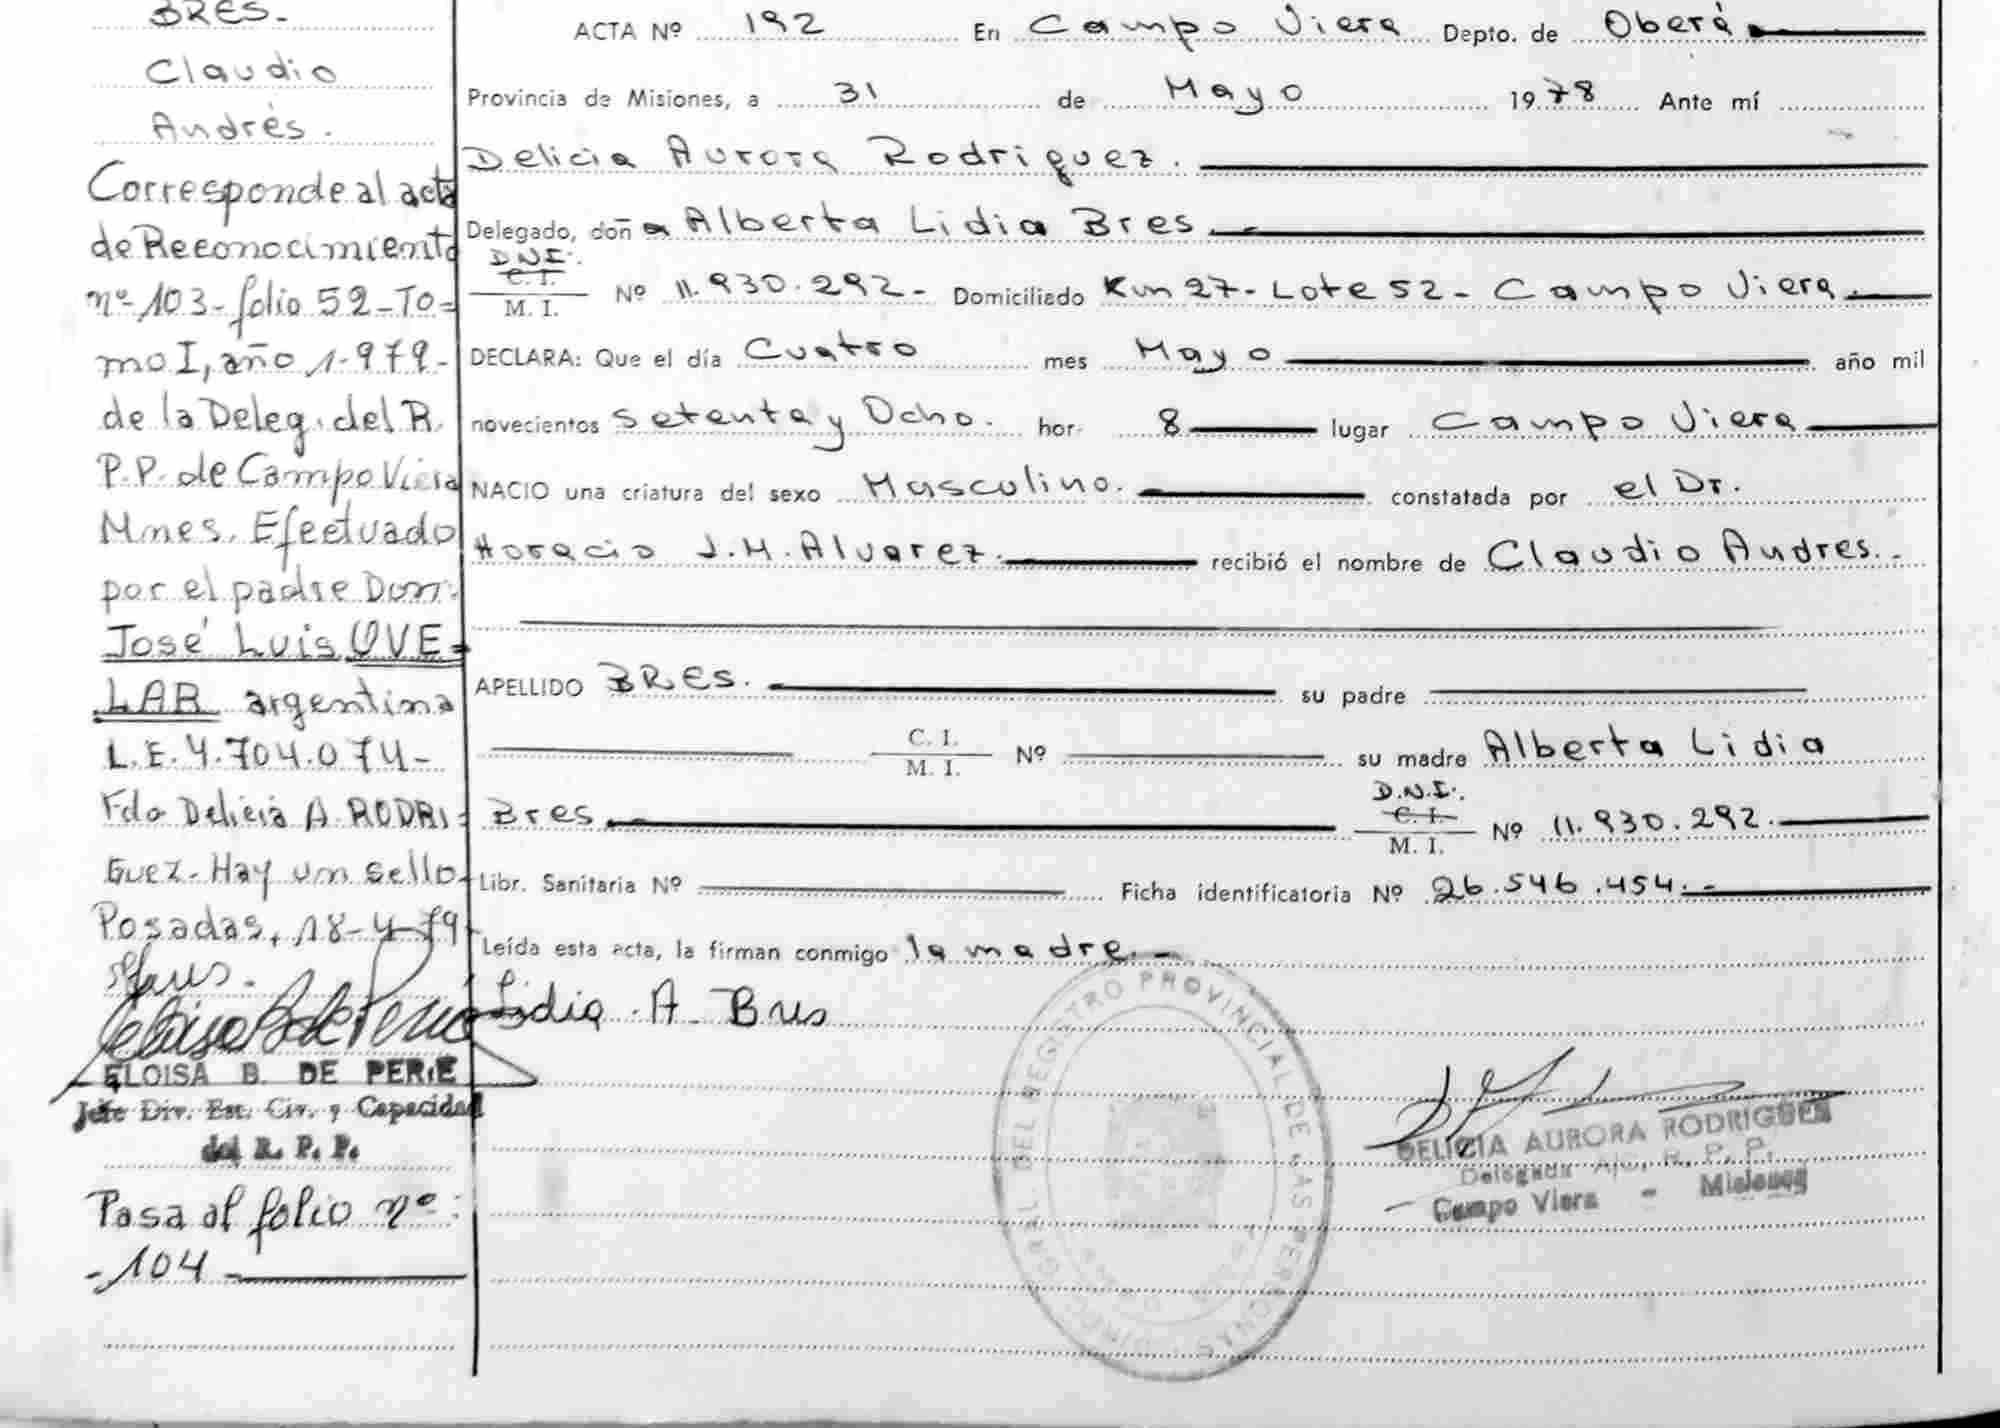 BRES.-
Claudio
Andrés.
Corresponde al acta
de Reconocimiento
nº-103-folio 52-To=
mo I, año 1.979-
de la Deleg. del R.
P.P. de Campo Viera
Mnes. Efectuado
por el padre Don:
José Luis OVE=
LAR argentina
L.E.7.704.074-
Fdo Delicia A. RODRI=
GUEZ- Hay un sello-
Posadas, 18-4-79-
ELOISA B. DE PERIE
Jefe Div. Est. Civ. y Capacidad
del R. P. P.
Pasa al folio nº:
-104-
ACTA Nº 192 En Campo Viera Depto. de Oberá
Provincia de Misiones, a 31 de Mayo 1978 Ante mí
Delicia Aurora Rodriguez.
Delegado, doña Alberta Lidia Bres.-
D.N.I.
C. I.
M. I. Nº 11.930.292- Domiciliado Km 27- Lote 52- Campo Viera
DECLARA: Que el día Cuatro mes Mayo año mil
novecientos Setenta y Ocho. hor. 8 lugar Campo Viera
NACIO una criatura del sexo Masculino. constatada por el Dr.
Horacio J.M. Alvarez. recibió el nombre de Claudio Andres.-
APELLIDO BRES. su padre
C. I.
M. I. Nº su madre Alberta Lidia
Bres D.N.I.
C. I.
M. I. Nº 11.930.292.
Libr. Sanitaria Nº Ficha identificatoria Nº 26.546.454.-
Leída esta acta, la firman conmigo la madre.-
Lidia A. Bres
DIREC. GRAL. DEL REGISTRO PROVINCIAL DE LAS PERSONAS
DELICIA AURORA RODRIGUEZ
Delegada A/C. R. P. P.
Campo Viera - Misiones